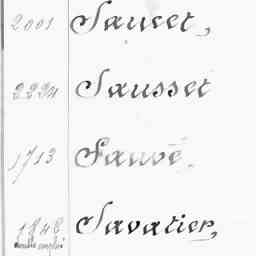 2001 Saucet,
2224 Sausset
1713 Sauvé,
1848 Savatier,
double emploi